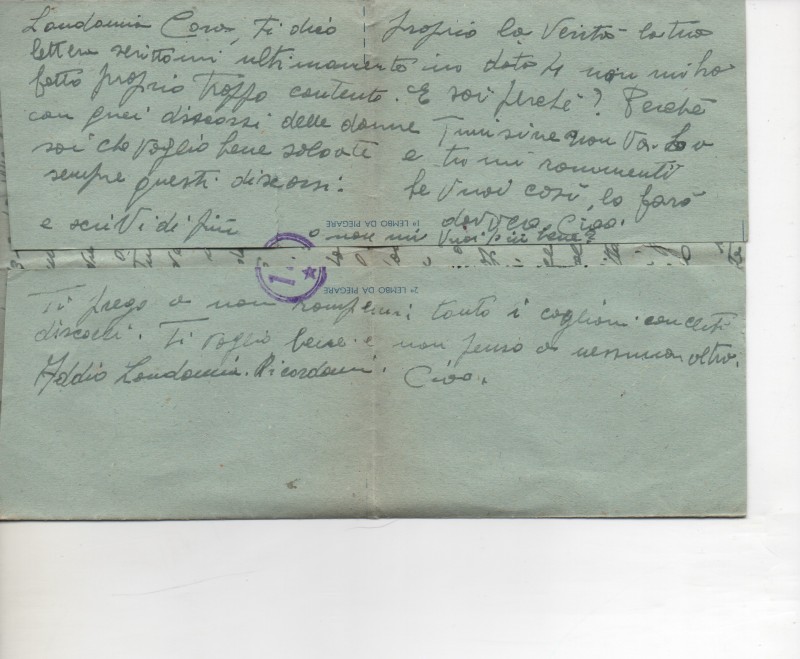 Laudamia Cara, Ti dico proprio la Verità la tua
lettera scrittomi ultimamente in data 4 non mi ha
fatto proprio Troppo contento. E sai perché? Perché
con quei discorsi delle donne Tunisine non va. Lo
sai che Voglio bene soltanto a te e tu mi rammenti
sempre questi discorsi. Se Vuoi così, lo farò
e scrivi di più davvero. Ciao.
o non mi Vuoi più bene?
1° LEMBO DA PIEGARE
2° LEMBO DA PIEGARE
Ti prego a non rompermi tanto i coglioni con certi
discorsi. Ti voglio bene e non penso a nessuna altra.
Addio Laudamia. Ricordami. Ciao.